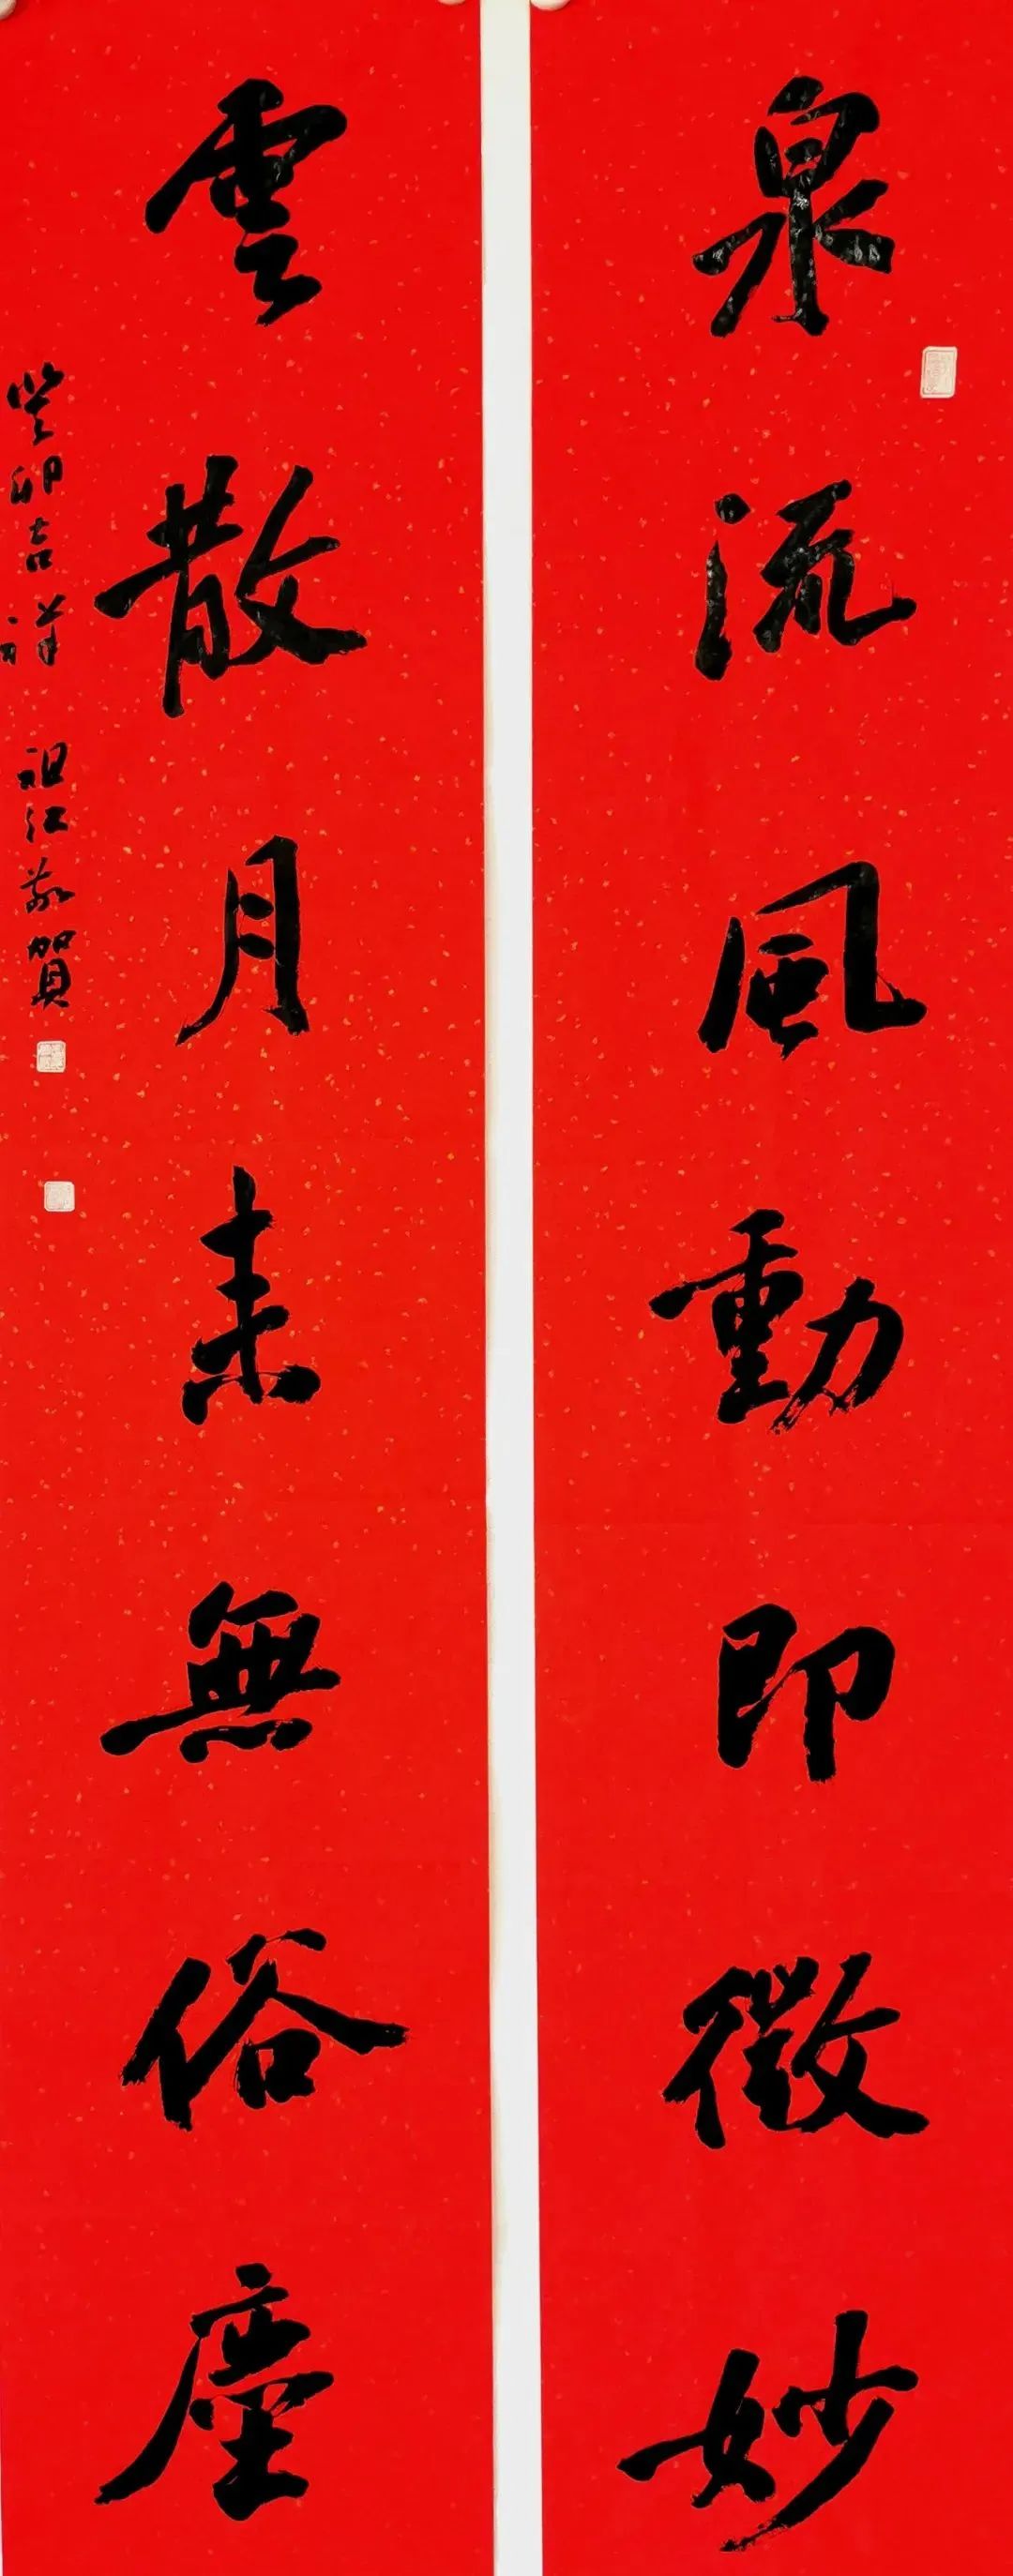 泉流風動即微妙
雲散月來無俗塵
癸卯吉祥 祖江敬賀